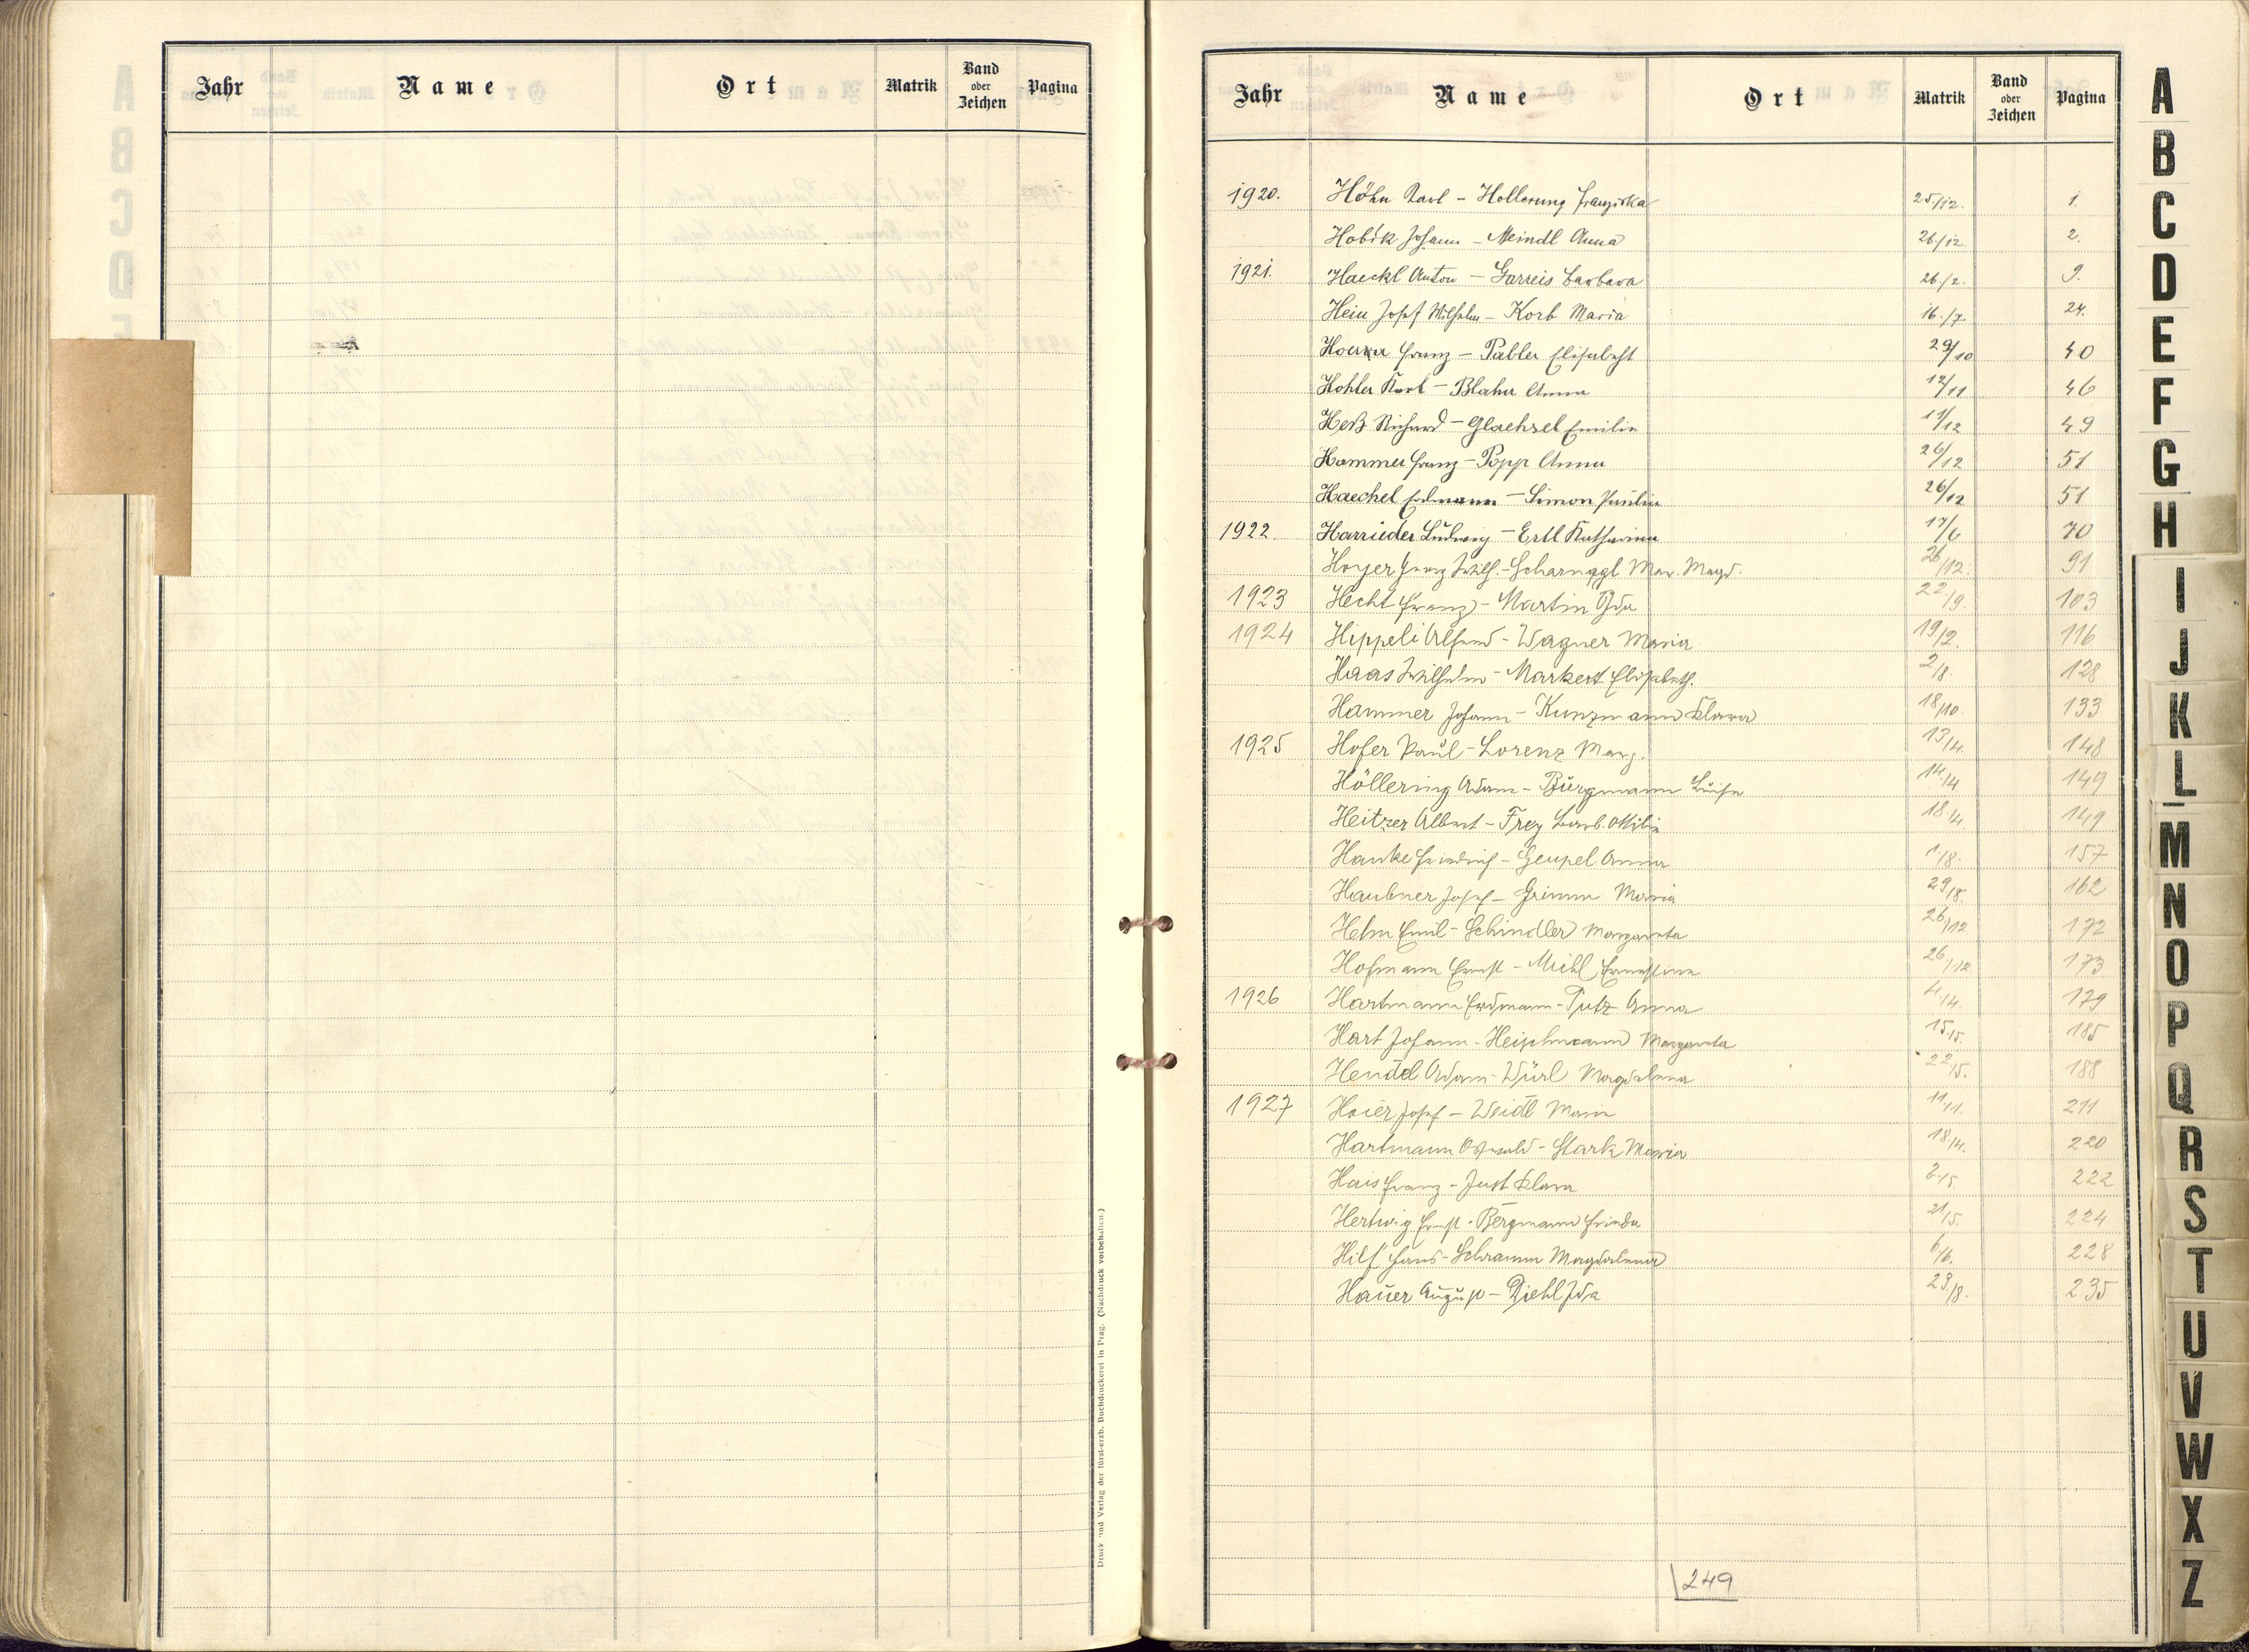 Jahr Name Ort Matrik Band oder Zeichen Pagina
Druck und Verlag der fürst-erzb. Buchdruckerei in Prag. (Nachdruck vorbehalten.)
Jahr Name Ort Matrik Band oder Zeichen Pagina
1920. Höhn Karl - Hollerung Franziska 25./12. 1.
Hobik Johann - Meindl Anna 26./12. 2.
1921. Haeckl Anton - Garreis Barbara 26./2. 9.
Hein Josef Wilhelm - Korb Maria 16./7. 24.
Franz - Pabler Elisabeth 29/10 40
Kohler Karl - Blaha Anna 12/11 46
Heß Richard - Glaehsel Emilie 11/12 49
Hammer Franz - Popp Anna 26/12 51
Haechel Erdmann - Simon Paulin 26/12 51
1922. Harrieder Ludwig - Ertl Katharina 17/6 70
Hoyer Georg Wilh. - Scharnagl Mar. Magd. 26/12. 91
1923 Hecht Franz - Martin Ida 22/9. 103
1924 Hippeli Alfred - Wagner Maria 19/2. 116
Haas Wilhelm - Markert Elisabeth. 2/8. 128
Hammer Johann - Kunzmann Klara 18/10. 133
1925 Hofer Paul - Lorenz Marg. 13/4. 148
Höllering Adam - Burgmann Luise 14./4 149
Heitzer Albert - Frey Barb. Ottilie 18./4 149
Hanke Friedrich - Geupel Anna 1/8. 157
Haubner Josef - Grimm Maria 29/8. 162
Helm Emil - Schindler Margareta 26/12 172
Hofmann Ernst - Michl Ernestine 26/12 173
1926 Hartmann Erdmann - Putz Anna 4/4. 179
Hart Johann - Heischmann Margareta 15/5. 185
Hendel Adam - Würl Magdalena 22/5. 188
1927 Hoier Josef - Weidl Marie 11/1. 211
Hartmann Oswald - Stark Maria 18/4. 220
Hais Franz - Just Klara 2/5. 222
Hertwig Ernst - Bergmann Frieda 21/5. 224
Hilf Hans - Schramm Magdalena 6/6. 228
Hauer August - Diehl Ida 23/8. 235
249
A
B
C
D
E
F
G
H
I
J
K
L
M
N
O
P
Q
R
S
T
U
V
W
X
Z